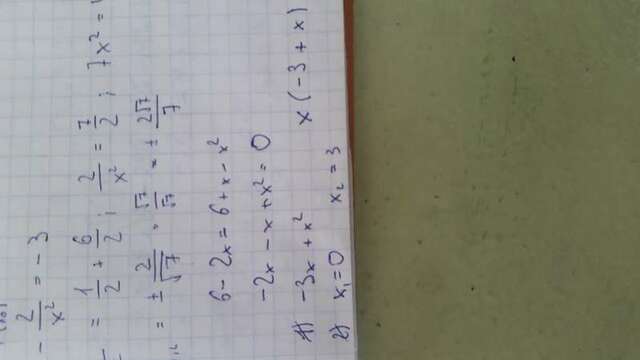 - 2/x² = - 3
= 1/2 + 6/2 ; 2/x² = 7/2 ; 7x² =
= ± 2/√7 · √7/√7 = ± 2√7/7
6 - 2x = 6 + x - x²
-2x - x + x² = 0
1) -3x + x² x(-3 + x)
2) x₁ = 0 x₂ = 3